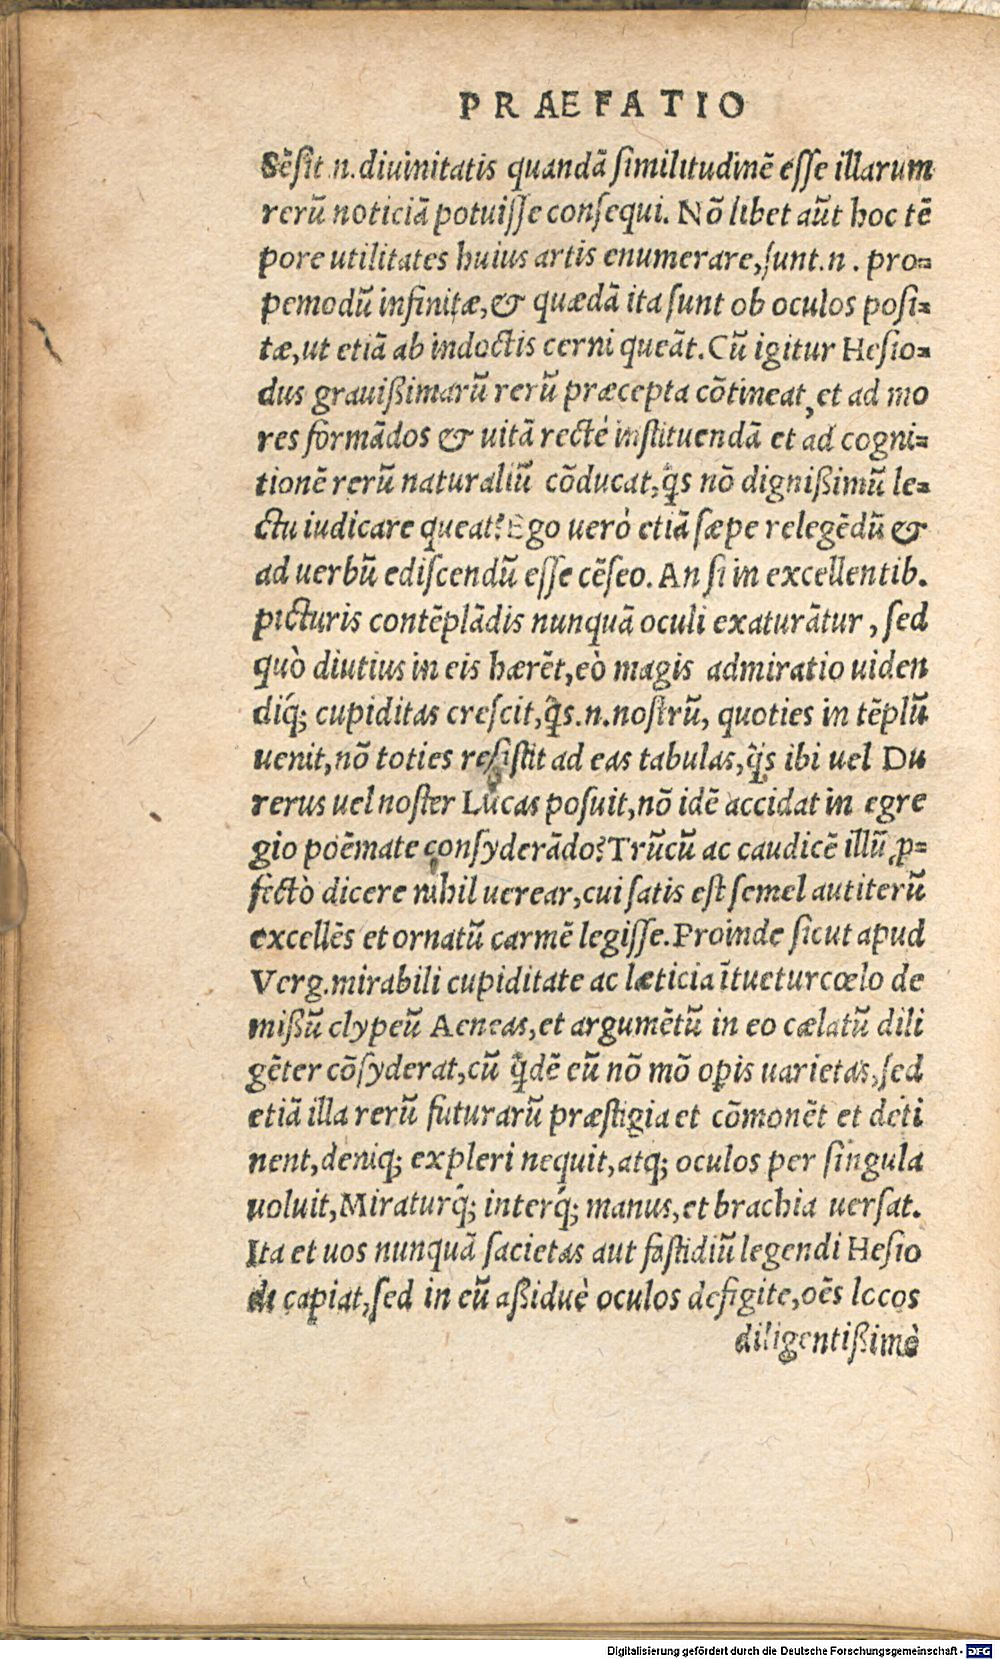 PRAEFATIO
Sēſit .n. diuinitatis quandā ſimilitudinē eſſe illarum
rerū noticiā potuiſſe conſequi. Nō libet aūt hoc tē
pore utilitates huius artis enumerare, ſunt.n. pro=
pemodū infinitæ, & quædā ita ſunt ob oculos poſi=
tæ, ut etiā ab indoctis cerni queāt. Cū igitur Heſio=
dus grauißimarū rerū præcepta cōtineat, et ad mo
res formādos & uitā rectè inſtituendā et ad cogni=
tionē rerū naturaliū cōducat, q̊s nō dignißimū le=
ctu iudicare queat? Ego uerò etiā ſæpe relegēdū &
ad uerbū ediſcendū eſſe cēſeo. An ſi in excellentib.
picturis contēplādis nunquā oculi exaturātur, ſed
quò diutius in eis hærēt, eò magis admiratio uiden
diq́; cupiditas creſcit, q̊s.n. noſtrū, quoties in tēplū
uenit, nō toties reſiſtit ad eas tabulas, q̊s ibi uel Du
rerus uel noſter Lucas poſuit, nō idē accidat in egre
gio poēmate conſyderādo? Trūcū ac caudicē illū ꝓ=
fectò dicere nihil uerear, cui ſatis eſt ſemel aut iterū
excellēs et ornatū carmē legiſſe. Proinde ſicut apud
Verg. mirabili cupiditate ac læticia ītuetur cœlo de
mißū clypeū Aeneas, et argumētū in eo cælatū dili
gēter cōſyderat, cū q̊dē eū nō mō oꝑis uarietas, ſed
etiā illa rerū futurarū præſtigia et cōmonēt et deti
nent, deniq; expleri nequit, atq; oculos per ſingula
uoluit, Miraturq́; interq́; manus, et brachia uerſat.
Ita et uos nunquā ſacietas aut faſtidiū legendi Heſio
di capiat, ſed in eū aßiduè oculos defigite, oēs locos
diligentißimè
Digitalisierung gefördert durch die Deutsche Forschungsgemeinschaft - DFG